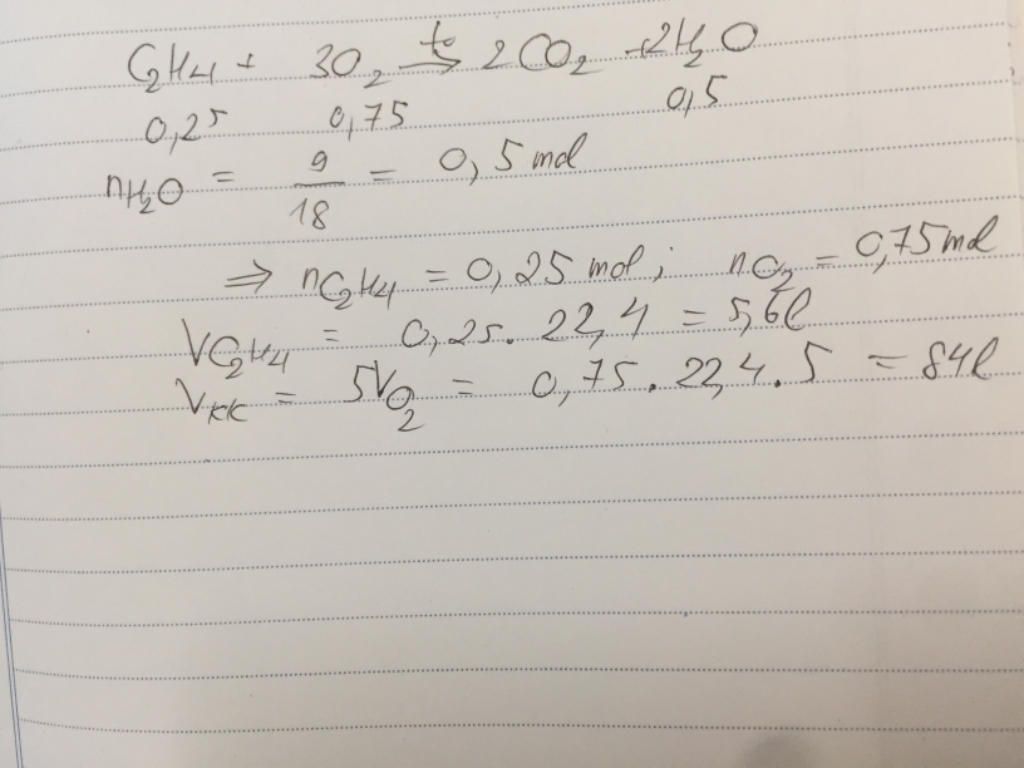 C₂H₄ + 3O₂ →(t°) 2CO₂ + 2H₂O
0,25 0,75 0,5
nH₂O = 9/18 = 0,5 mol
⇒ nC₂H₄ = 0,25 mol; nO₂ = 0,75 mol
VC₂H₄ = 0,25.22,4 = 5,6l
Vkk = 5VO₂ = 0,75.22,4.5 = 84l